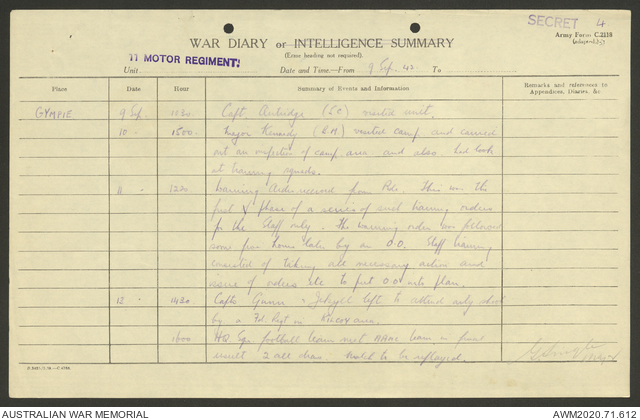 SECRET 4
Army Form C.2118
WAR DIARY or INTELLIGENCE SUMMARY
(Erase heading not required).
11 MOTOR REGIMENT.
Unit
Date and Time—From 9 Sep. 42. To
Place Date Hour Summary of Events and Information Remarks and references to
Appendices, Diaries, &c.
GYMPIE 9 Sep. 1030. Capt. (SC) visited unit.
10 - 1500. Major Kennedy (B.M.) visited camp and carried
out an inspection of camp area and also had look
at training
11 - 1220 Warning Order received from Bde. This was the
first phase of a series of such training orders
for the Staff only. The warning order was followed
some four hours later by an O.O. Staff training
consisted of taking all necessary action and
issue of orders etc to put O.O. into plan.
12 - 1430 Capts Gunn & left to attend
by a Fd. Regt in Kilcoy area.
1600 HQ Sqn football team met AAMC team in final
result 2 all draw. Match to be replayed.
AUSTRALIAN WAR MEMORIAL
AWM2020.71.612